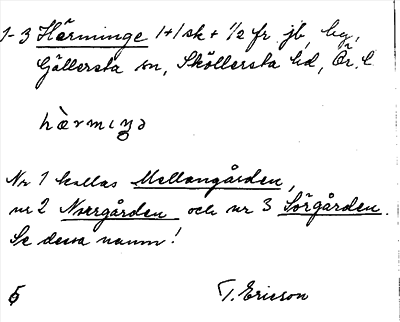 1-3 Härminge 1+1 sk + 1/2 fr. jb, by,
Gällersta sn, Sköllersta hd, Ör. l.
hæ̀rmıŋə
Nr 1 kallas Mellangården,
nr 2 Norrgården och nr 3 Sörgården.
Se dessa namn!
T. Ericson